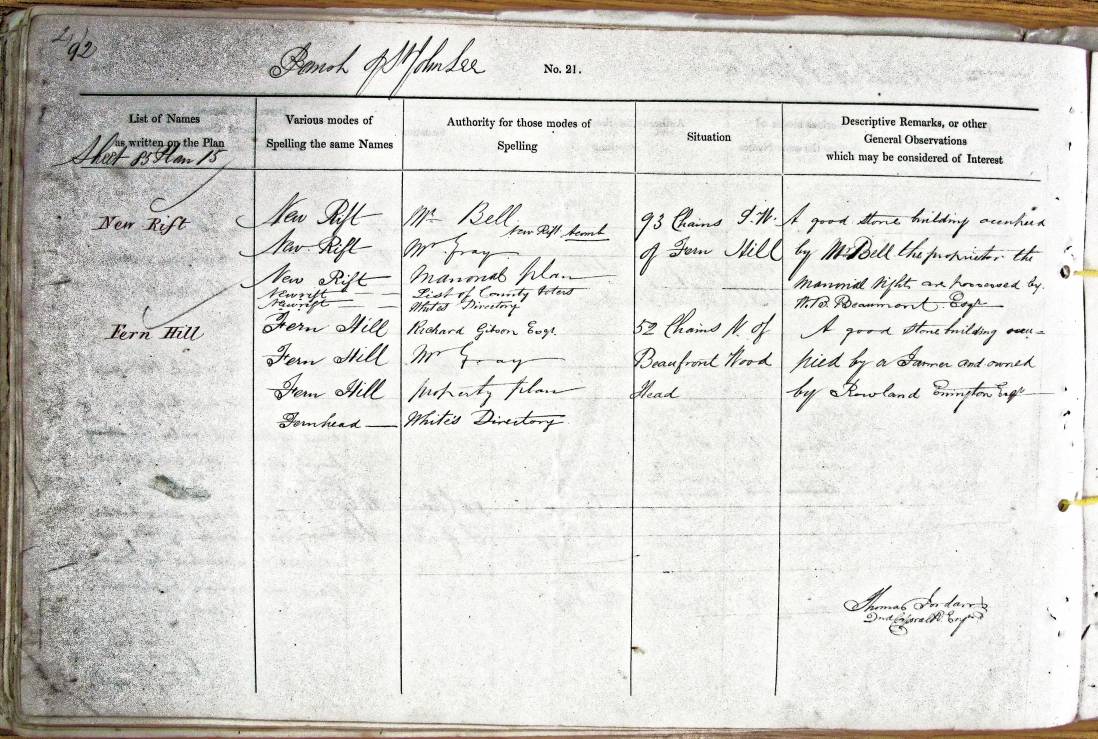 92
Parish of St John Lee No. 21.
List of Names as written on the Plan
Various modes of Spelling the same Names
Authority for those modes of Spelling
Situation
Descriptive Remarks, or other General Observations which may be considered of Interest
Sheet 85 Plan 15
New Rift New Rift Mr Bell New Rift Acomb 93 Chains S.W. A good stone building occupied
New Rift Mr Gray of Fern Hill by Mr Bell the proprietor the
New Rift Manorial plan Manorial Rights are possessed by
Newrift List of County Voters W.B. Beaumont Esqr
Newrift White's Directory
Fern Hill Fern Hill Richard Gibson Esqr. 52 Chains N. of A good stone building occu=
Fern Hill Mr Gray Beaufront Wood pied by a Farmer and owned
Fern Hill property plan Head by Rowland Errington Esqr
Fernhead White's Directory
Thomas Jordan
2nd Corporal R. Engrs